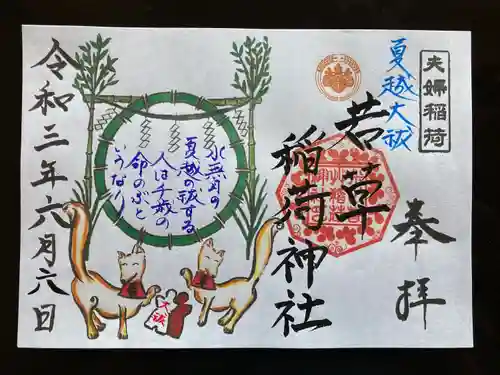 夫婦稲荷
夏越大祓
奉拝
若草
稲荷神社
水無月の
夏越の祓する
人は千歳の
命のぶと
いうなり
大祓
令和三年六月六日